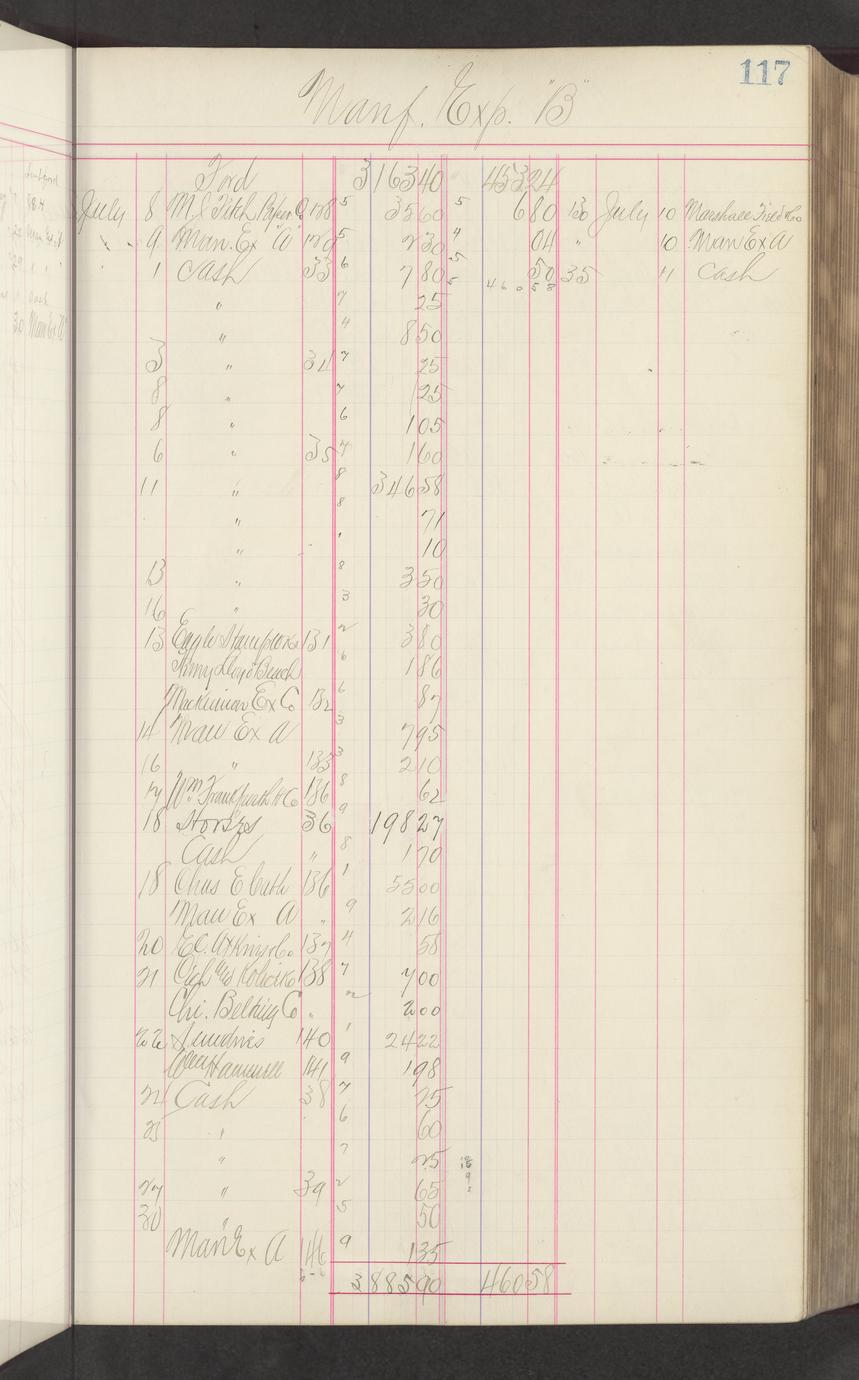 117
Manf. Exp. "B"
Ford 316340 45324
July 8 M. J. Fitch Paper Co 128 5 3560 5 680 130 July 10 Marshall Field Co
" 9 Man. Ex "A" 120 5 230 4 04 " 10 Man Ex A
1 Cash 33 6 780 5 50 35 11 Cash
" 7 25 5 46058
" 4 850
3 " 34 7 25
8 " 7 25
8 " 6 105
6 " 35 4 160
11 " 8 34658
" 8 71
" " 10
13 " 8 350
16 " 3 30
13 Eagle 131 2 380
Lloyd 6 186
Mackinnon Ex Co 132 6 87
14 Man Ex A 3 795
16 " 133 3 210
17 Wm Frankfurth H Co 136 8 62
18 Stores 36 9 19827
Cash " 8 170
18 Chas E 136 1 5500
Man Ex A " 9 216
20 E.C. Atkins & Co. 137 4 58
21 138 7 700
Chi. Belting Co " 2 200
22 Sundries 140 1 2422
141 9 198
21 Cash 38 7 25
23 " 6 60
" 7 25
27 " 39 2 65
30 " 5 50
Man Ex A 146 9 135
388590 46058